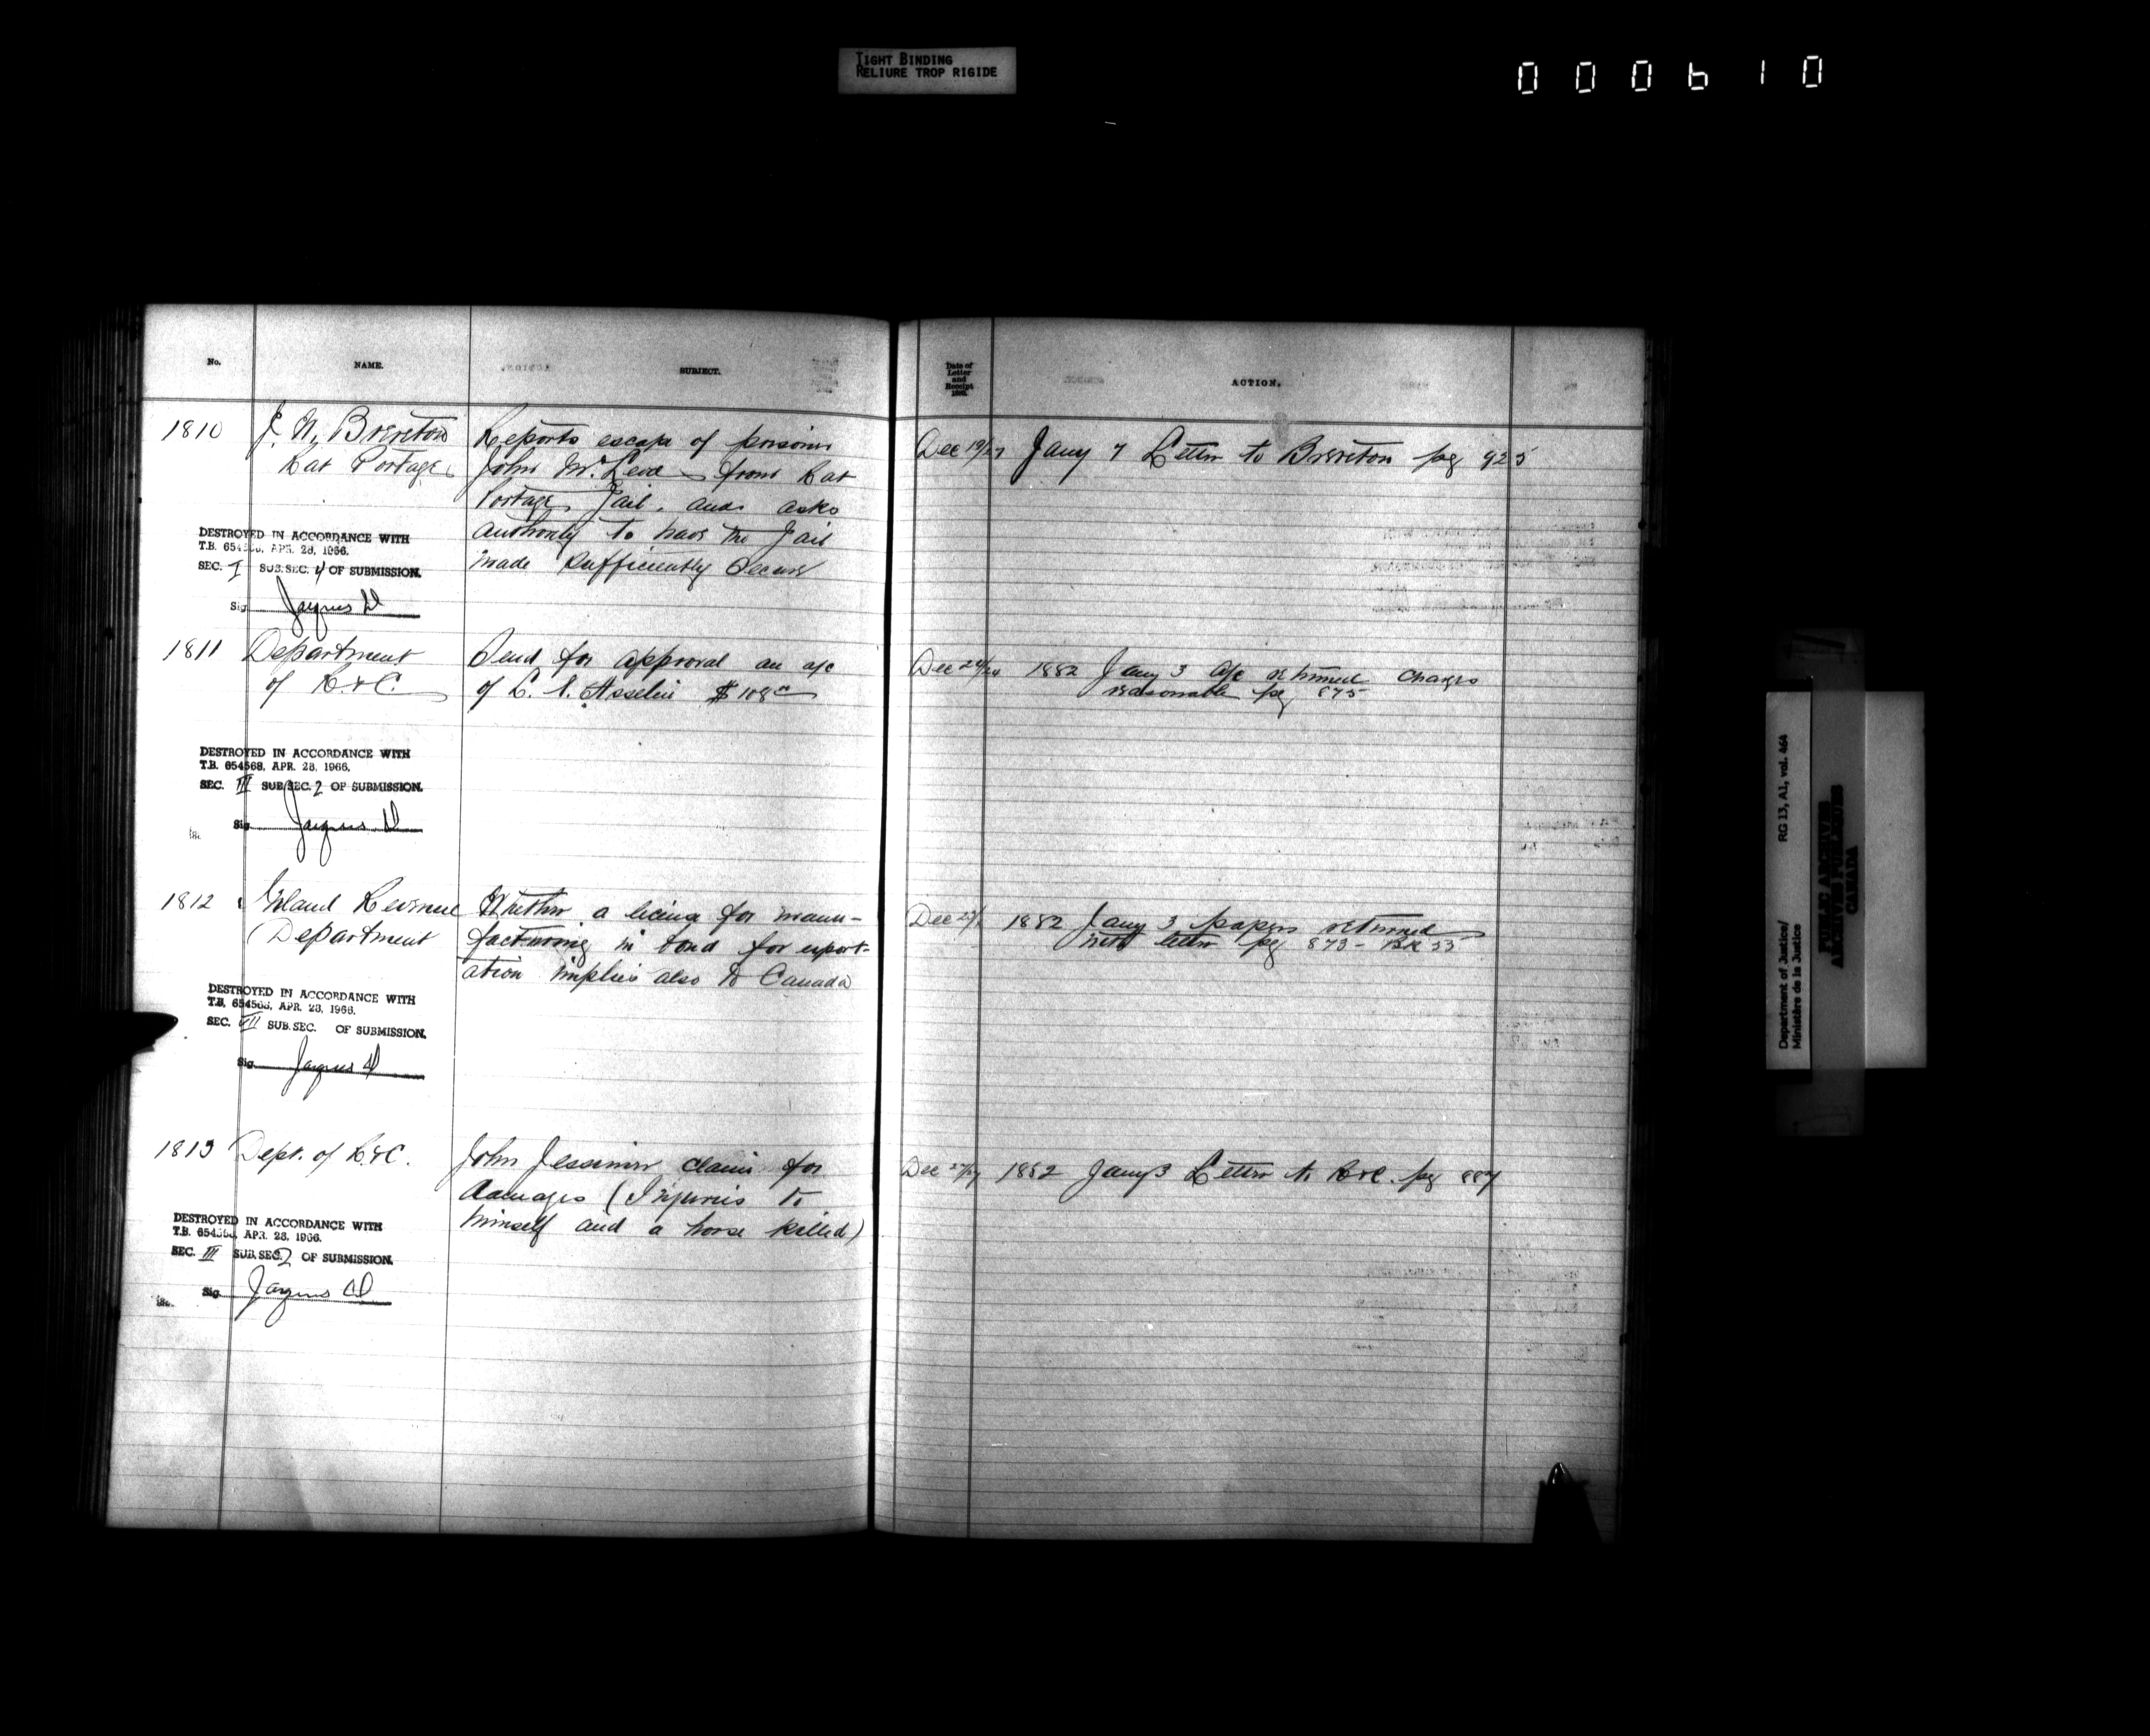 TIGHT BINDING
RELIURE TROP RIGIDE
000610
No.
NAME.
SUBJECT.
Date of
Letter
and
Receipt
ACTION.
1810
J. N. Brereton
Rat Portage
Reports escape of prisoner
John McLeod from Rat
Portage Jail, and asks
authority to have the Jail
made sufficiently secure
Dec 19/27
Jany 7 Letter to Brereton pg 925
DESTROYED IN ACCORDANCE WITH
T.B. 654568, APR. 28, 1966.
SEC. I SUB.SEC. 4 OF SUBMISSION.
Sig.
1811
Department
of R. & C.
Send for approval an a/c
of L. N. Asselin $108
Dec 24/24
1882 Jany 3 a/c returned charges
reasonable pg 875
DESTROYED IN ACCORDANCE WITH
T.B. 654568, APR. 28, 1966.
SEC. III SUB.SEC. 2 OF SUBMISSION.
Sig.
1812
Inland Revenue
Department
Whether a license for manu-
facturing in bond for export-
ation implies also to Canada
Dec
1882 Jany 3 papers returned
with letter pg 873 - BK 55
DESTROYED IN ACCORDANCE WITH
T.B. 654568, APR. 28, 1966.
SEC. VII SUB.SEC. OF SUBMISSION.
Sig.
1813
Dept. of R. & C.
John Jessimer claim for
damages (Injuries to
himself and a horse killed)
Dec 27/27
1882 Jany 3 Letter to R & C. pg 887
DESTROYED IN ACCORDANCE WITH
T.B. 654568, APR. 28, 1966.
SEC. III SUB.SEC. 2 OF SUBMISSION.
Sig.
Department of Justice/ RG 13, A1, vol. 464
Ministère de la Justice
PUBLIC ARCHIVES
ARCHIVES PUBLIQUES
CANADA